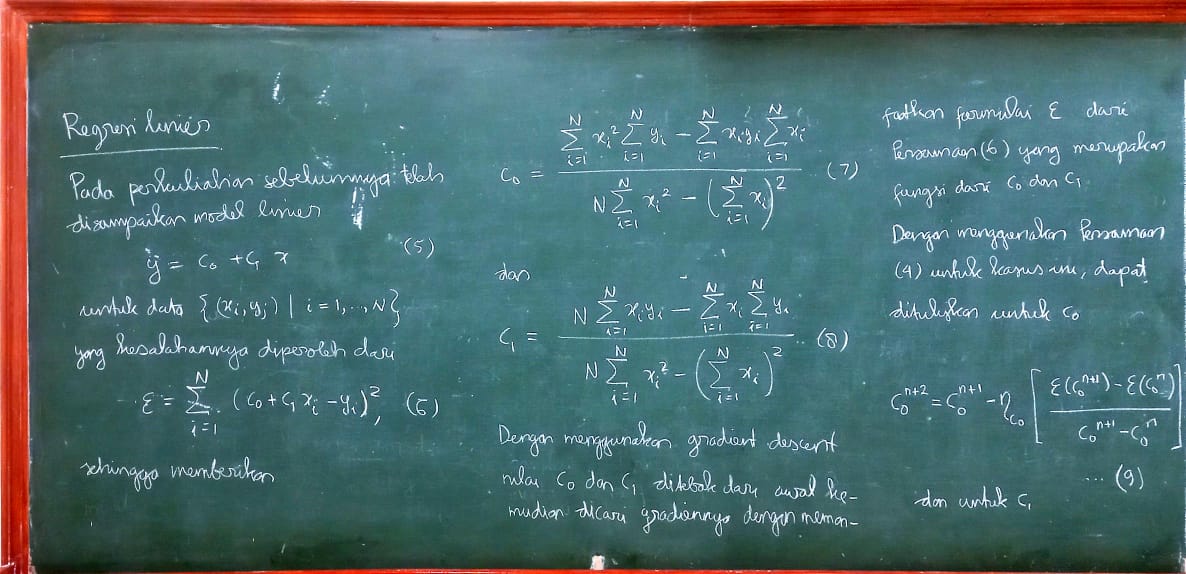 Regresi linier
Pada perkuliahan sebelumnya telah
disampaikan model linier
ÿ = c₀ + c₁ x (5)
untuk data {(xᵢ, yᵢ) | i = 1, ..., N}
yang kesalahannya diperoleh dari
ε = ∑_{i=1}^{N} (c₀ + c₁ xᵢ − yᵢ)², (6)
sehingga memberikan
c₀ = (∑_{i=1}^{N} xᵢ² ∑_{i=1}^{N} yᵢ − ∑_{i=1}^{N} xᵢyᵢ ∑_{i=1}^{N} xᵢ) / (N ∑_{i=1}^{N} xᵢ² − (∑_{i=1}^{N} xᵢ)²) (7)
dan
c₁ = (N ∑_{i=1}^{N} xᵢyᵢ − ∑_{i=1}^{N} xᵢ ∑_{i=1}^{N} yᵢ) / (N ∑_{i=1}^{N} xᵢ² − (∑_{i=1}^{N} xᵢ)²) .. (8)
Dengan menggunakan gradient descent
nilai c₀ dan c₁ ditebak dari awal ke-
mudian dicari gradiennya dengan meman-
faatkan formulai ε dari
Persamaan (6) yang merupakan
fungsi dari c₀ dan c₁
Dengan menggunakan Persamaan
(4) untuk kasus ini, dapat
dituliskan untuk c₀
c₀ⁿ⁺² = c₀ⁿ⁺¹ − η_{c₀} [(ε(c₀ⁿ⁺¹) − ε(c₀ⁿ)) / (c₀ⁿ⁺¹ − c₀ⁿ)]
... (9)
dan untuk c₁